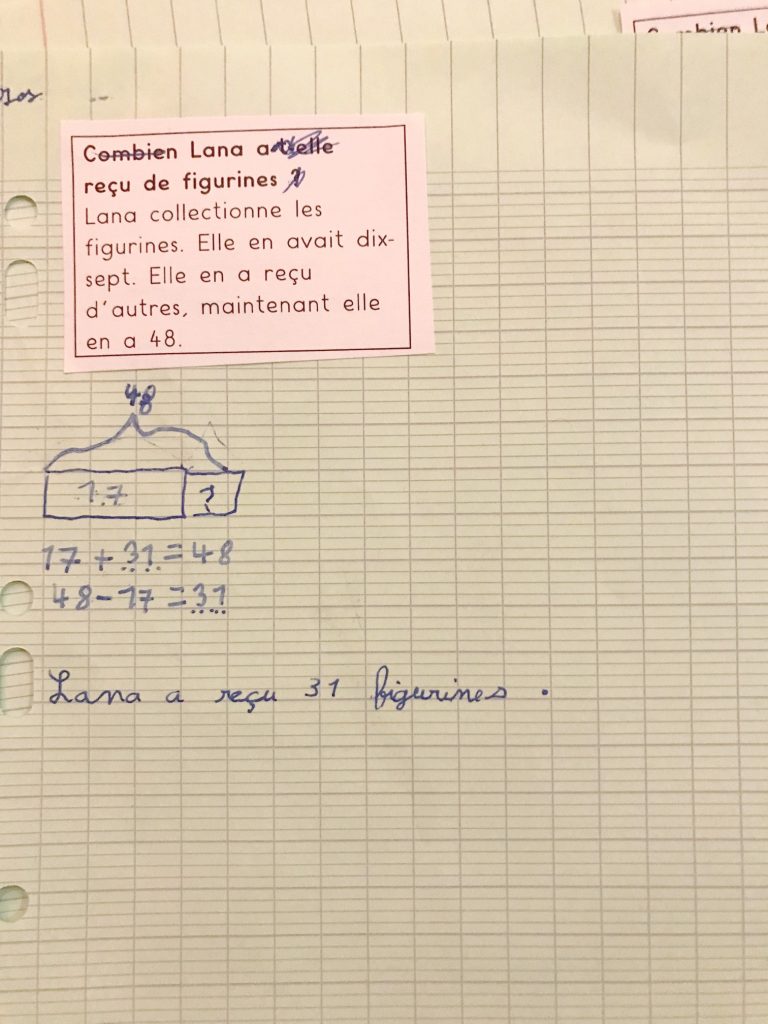 Combien Lana a-t-elle
reçu de figurines ?
Lana collectionne les
figurines. Elle en avait dix-
sept. Elle en a reçu
d'autres, maintenant elle
en a 48.
48
17 ?
17 + 31 = 48
48 - 17 = 31
Lana a reçu 31 figurines .